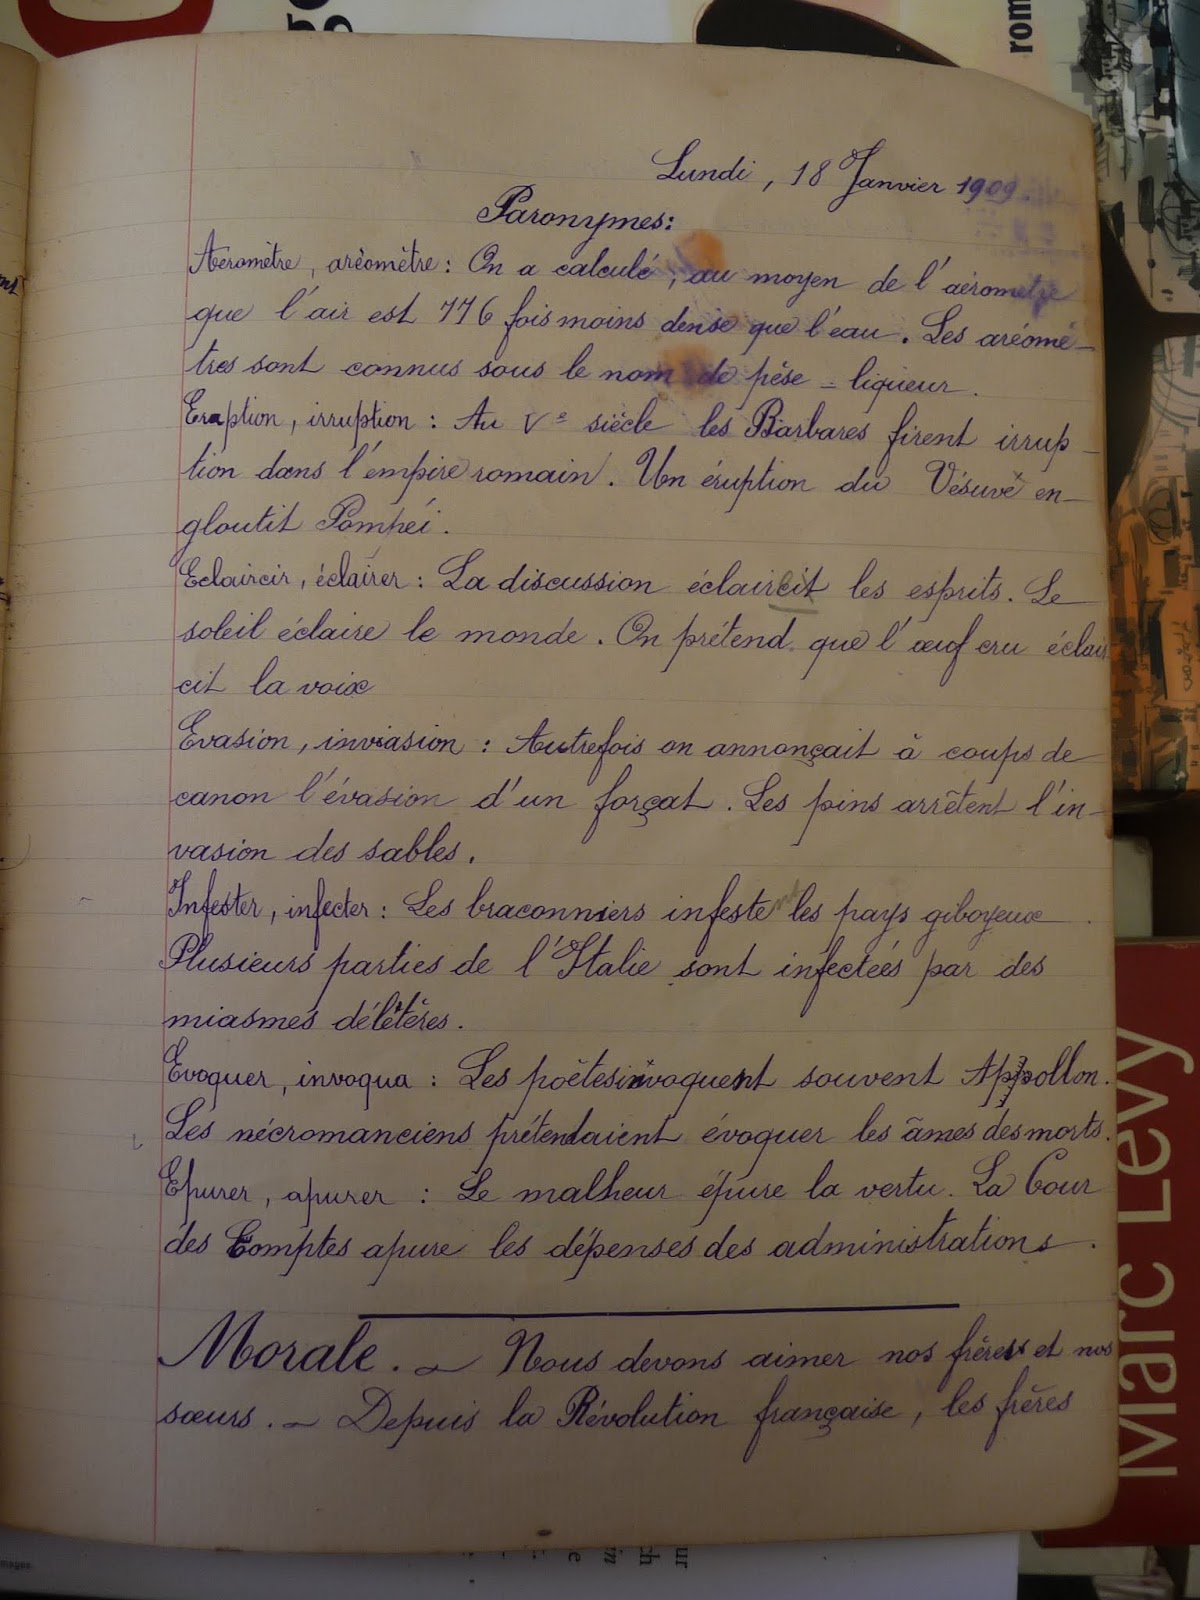 rom
Lundi, 18 Janvier 1909.
Paronymes:
Aeromètre, aréomètre: On a calculé, au moyen de l'aéromètre
que l'air est 776 fois moins dense que l'eau. Les aréomè-
tres sont connus sous le nom de pèse-liqueur.
Eruption, irruption: Au Ve siècle les Barbares firent irrup-
tion dans l'empire romain. Un éruption du Vésuve en-
gloutit Pompéi.
Eclaircir, éclairer: La discussion éclaircit les esprits. Le
soleil éclaire le monde. On prétend que l'œuf cru éclair
cit la voix
Evasion, invasion: Autrefois on annonçait à coups de
canon l'évasion d'un forçat. Les pins arrêtent l'in-
vasion des sables.
Infester, infecter: Les braconniers infestent les pays giboyeux.
Plusieurs parties de l'Italie sont infectées par des
miasmes délétères.
Evoquer, invoqua: Les poëtes invoquent souvent Appollon.
Les nécromanciens prétendaient évoquer les âmes des morts.
Epurer, apurer: Le malheur épure la vertu. La Cour
des Comptes apure les dépenses des administrations.
Morale. — Nous devons aimer nos frères et nos
sœurs. — Depuis la Révolution française, les frères
Marc Levy